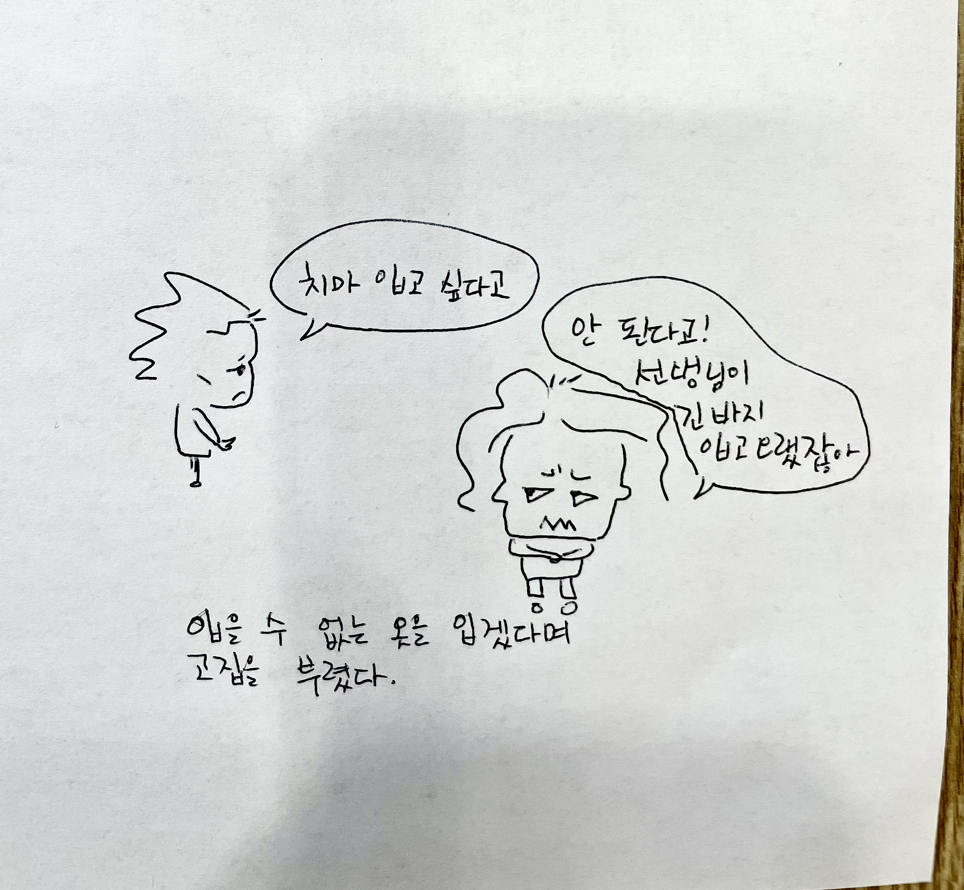 치마 입고 싶다고
안 된다고!
선생님이
긴 바지
입고 오랬잖아
입을 수 없는 옷을 입겠다며
고집을 부렸다.